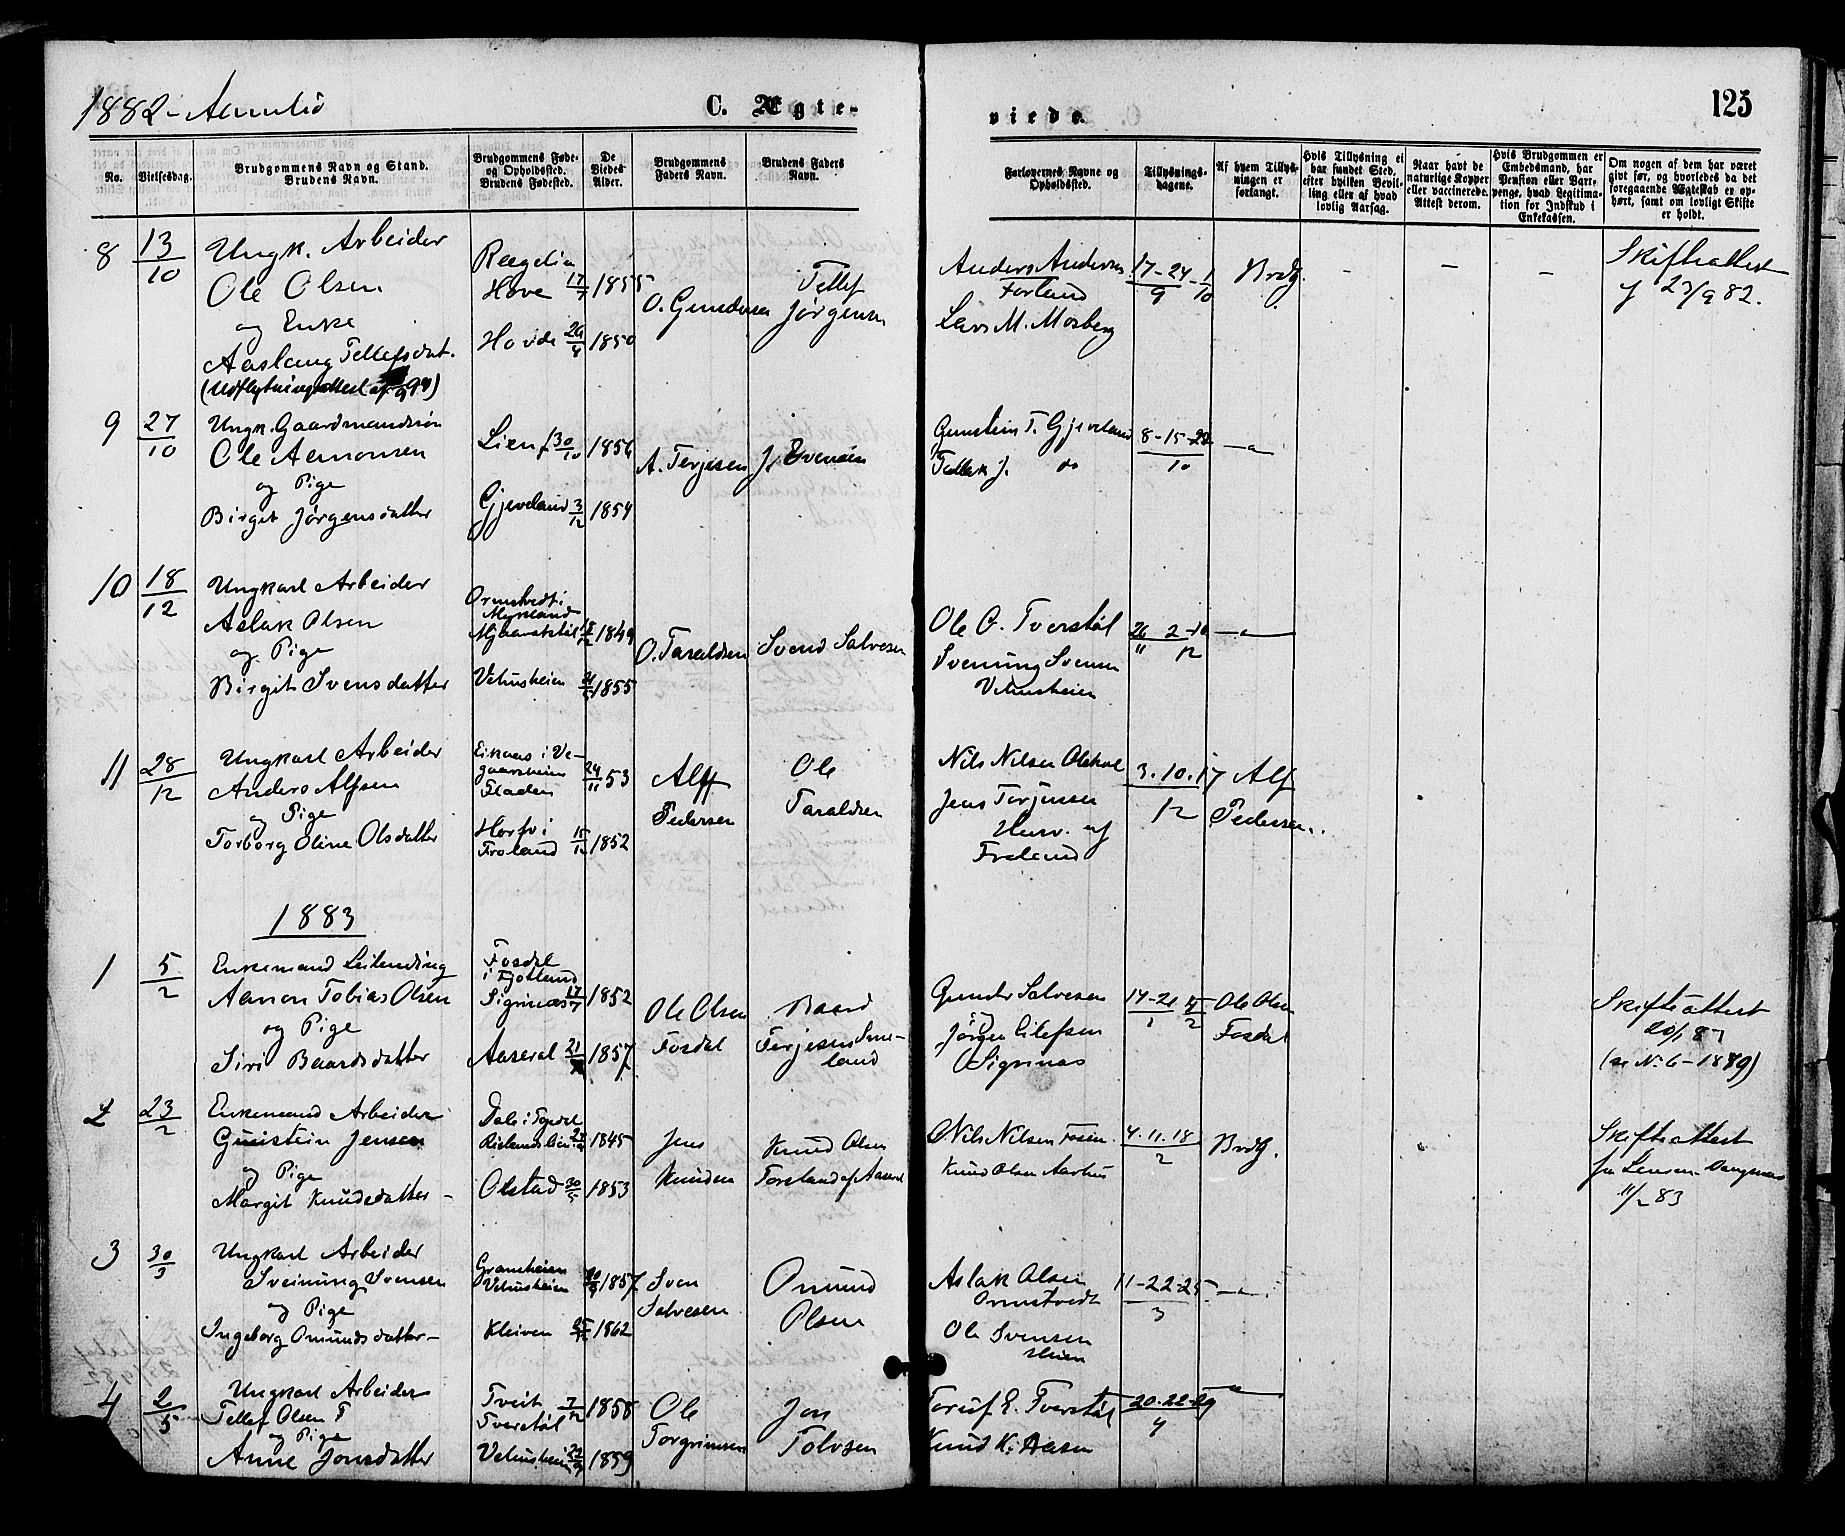 1882 - Aamlid
C. Ægte-
viede.
125
No.
Vielsesdag.
Brudgommens Navn og Stand.
Brudens Navn.
Brudgommens Føde-
og Opholdssted.
Brudens Fødested.
De
Viedes
Alder.
Brudgommens
Faders Navn.
Brudens Faders
Navn.
Forlovernes Navne og
Opholdssted.
Tillysnings-
dagene.
Af hvem Tillys-
ningen er
forlangt.
Hvis Tillysning ei
har fundet Sted,
efter hvilken Bevil-
ling eller af hvad
lovlig Aarsag.
Naar havt de
naturlige Kopper
eller vaccinerede.
Attest derom.
Hvis Brudgommen er
Embedsmand, har
Pension eller Vart-
penge, hvad Legitima-
tion for Indskud i
Enkekassen.
Om nogen af dem har været
gift før, og hvorledes da det
foregaaende Ægteskab er op-
hørt, samt om lovligt Skifte
er holdt.
8 13/10 Ungk. Arbeider
Ole Olsen
og Enke
Aaslaug Tellefsdat.
(Udflytningsattest af
Hove 17/7 1855
Hovde 26/4 1850
O. Gundersen
Tellef
Jørgensen
Anders Andersen
Forland
Lars M. Mosberg
17-24-1
9 10
Brdg. - - -
Skifteattest
af 23/9 82.
9 27/10 Ungk. Gaardmandssøn
Ole Aamonsen
og Pige
Birget Jørgensdatter
Lien 30/10 1856
Gjeveland 3/12 1854
A. Terjesen
J. Evensen
Gunstein T. Gjeveland
Tellak J. do
8-15-22
10
10 18/12 Ungkarl Arbeider
Aslak Olsen
og Pige
Birgit Svensdatter
Ormstvedt i
Mykland
1849
Vehusheien 1855
O. Taraldsen
Svend Salvesen
Ole O. Tverstøl
Svenung Svensen
Vehusheien
26 2-10
11 12
11 28/12 Ungkarl Arbeider
Anders Alfsen
og Pige
Torborg Oline Olsdatter
Eikaas i Ve-
gaarsheien
Fladen
24/11 53
i
Froland 15/12 1852
Alf
Pedersen
Ole
Taraldsen
Nils Nilsen
Jens Terjesen
af
Froland
3. 10. 17
12
Alf
Pedersen.
1883
1 5/2 Enkemand Leilending
Aamon Tobias Olsen
og Pige
Siri Baardsdatter
Fosdal
i Fjotland
Sigrinæs 17/7 1852
Aaseral 21 1857
Ole Olsen
Fosdal
Baard
Terjesen Sme-
land
Gunder Salvesen
Jørgen Eilefsen
Sigrinæs
14-21
1 2
Ole Olsen
Fosdal
Skifteattest
20/1 83
(se No. 6 - 1879)
2 23/2 Enkemand Arbeider
Gunstein Jensen
og Pige
Margit Knudsdatter -
Dale i Topdal
1845
Olstad 30/5 1853
Jens
Knudsen
Knud Olsen
af Aaseral
Nils Nilsen Fosen
Knud Olsen Aarhus
4. 11. 18
2
Brdg.
Skifteattest
fra Lensm.
11/2 83
3 30/3 Ungkarl Arbeider
Sveinung Svensen
og Pige
Ingeborg Omundsdatter -
Granheien
Vehusheien 1857
Kleiven 1862
Sven
Salvesen
Omund
Olsen
Aslak Olsen
Ormstvedt
Ole Svensen
11-22-25
3
4 2/5 Ungkarl Arbeider
Tellef Olsen
og Pige
Anne Jonsdatter
Tveit
Tverstøl 7/12 1858
Vehusheien 1859
Ole
Torgrimsen
Jon
Tolvsen
Toruf E. Tverstøl
Knud K. Aasen
20. 22. 29
4